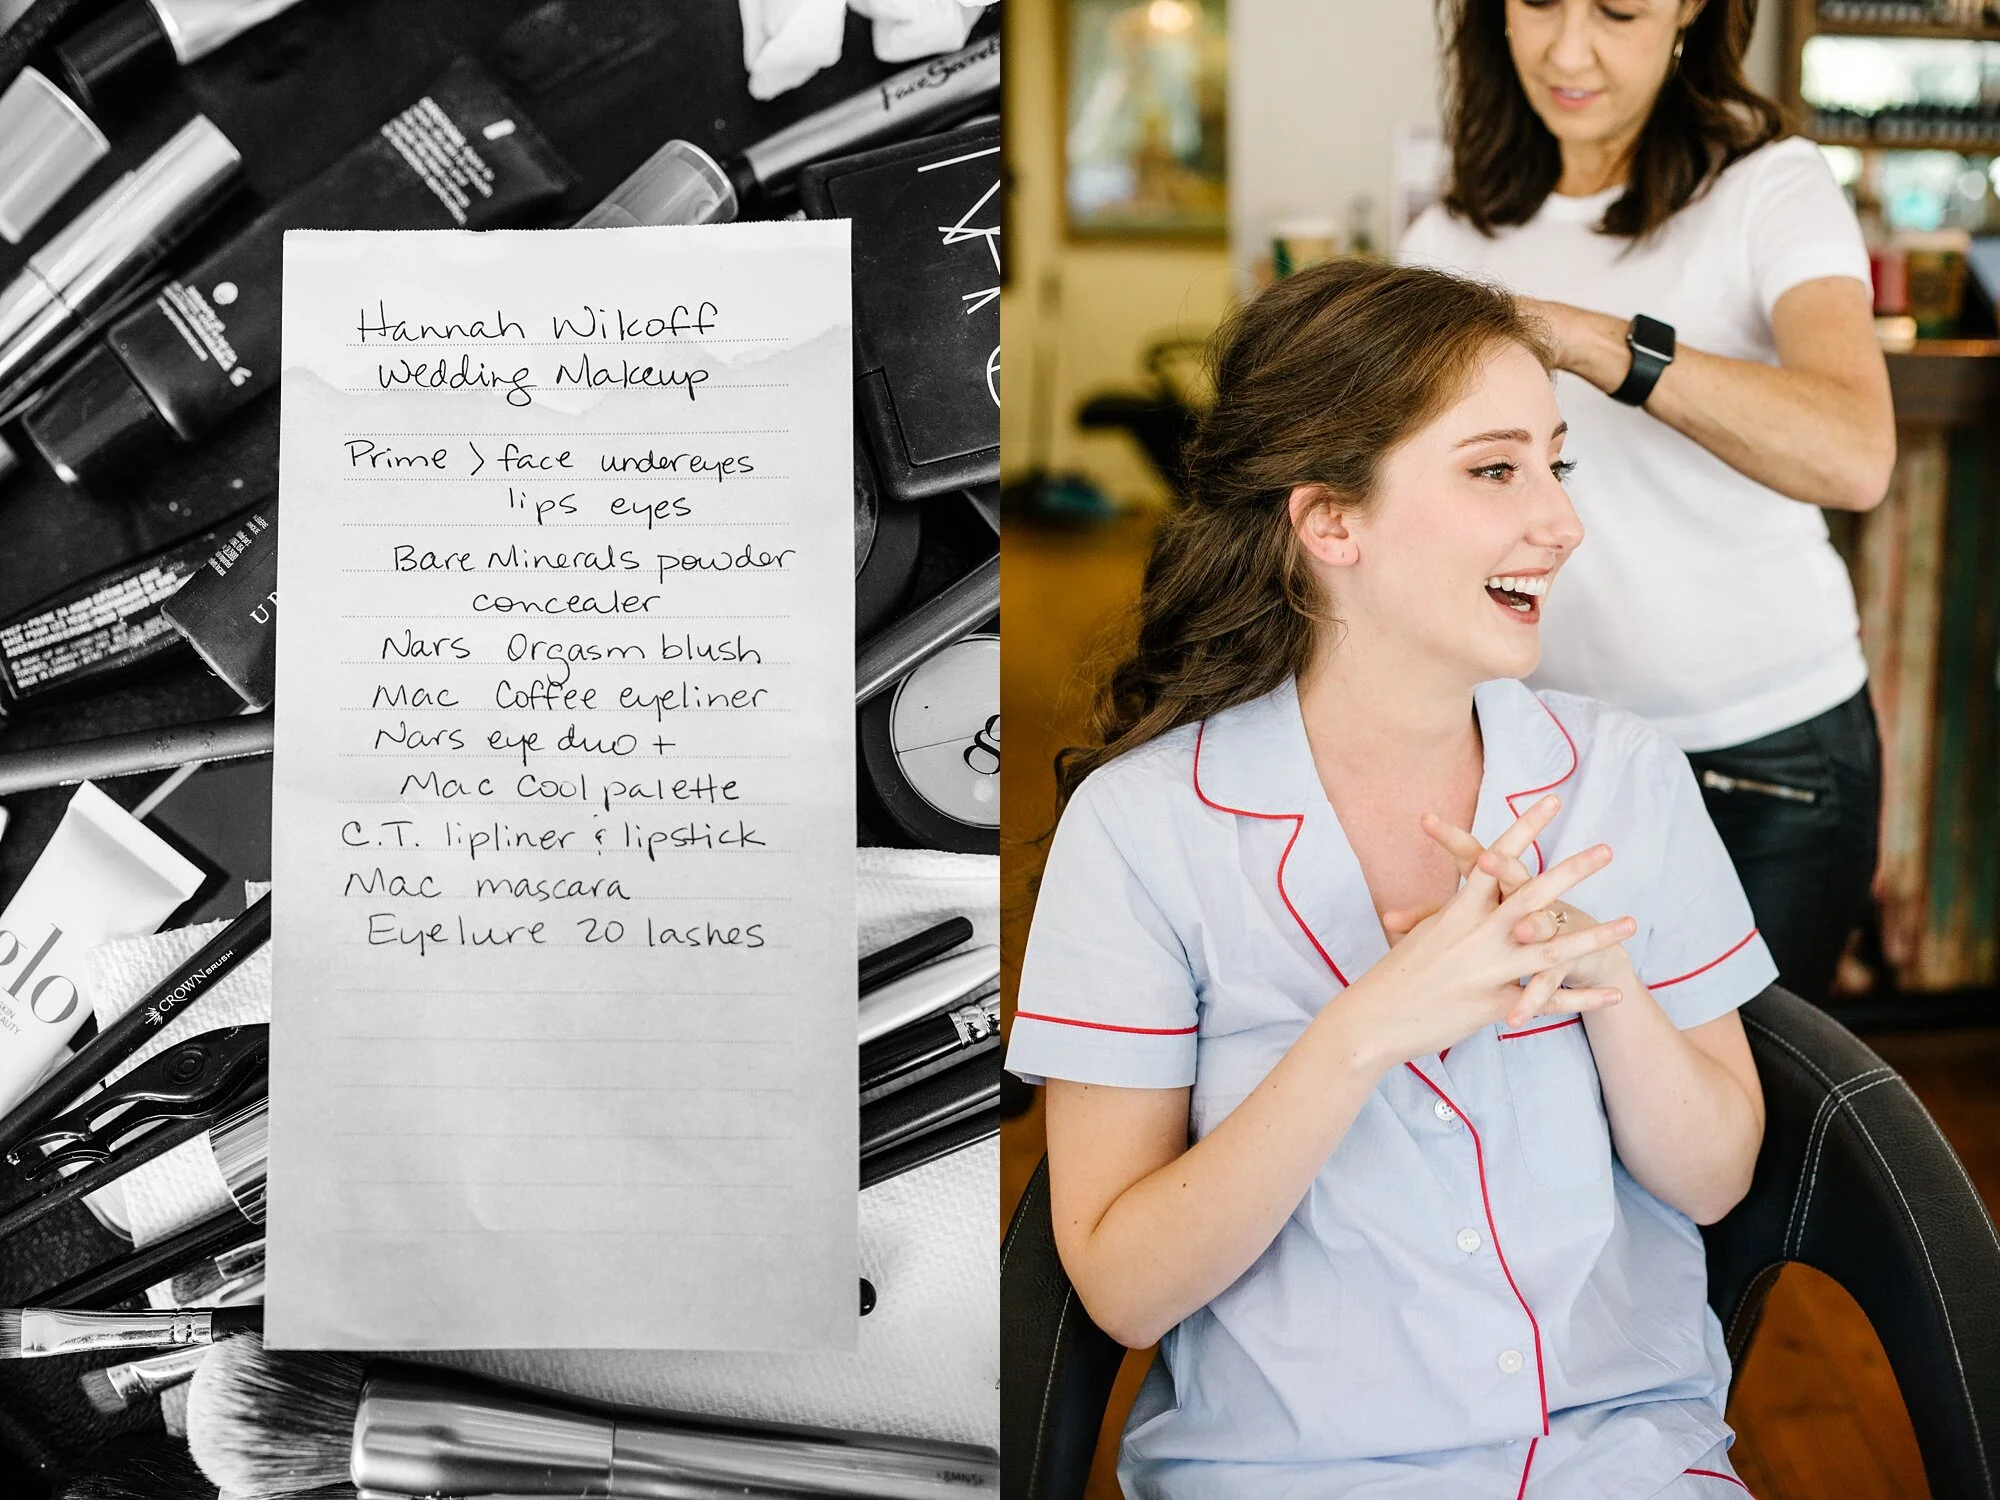 Hannah Wikoff
Wedding Makeup
Prime > face undereyes
lips eyes
Bare Minerals powder
concealer
Nars Orgasm blush
Mac Coffee eyeliner
Nars eye duo +
Mac Cool palette
C.T. lipliner & lipstick
Mac mascara
Eyelure 20 lashes
Face Secrets
glo
CROWN BRUSH